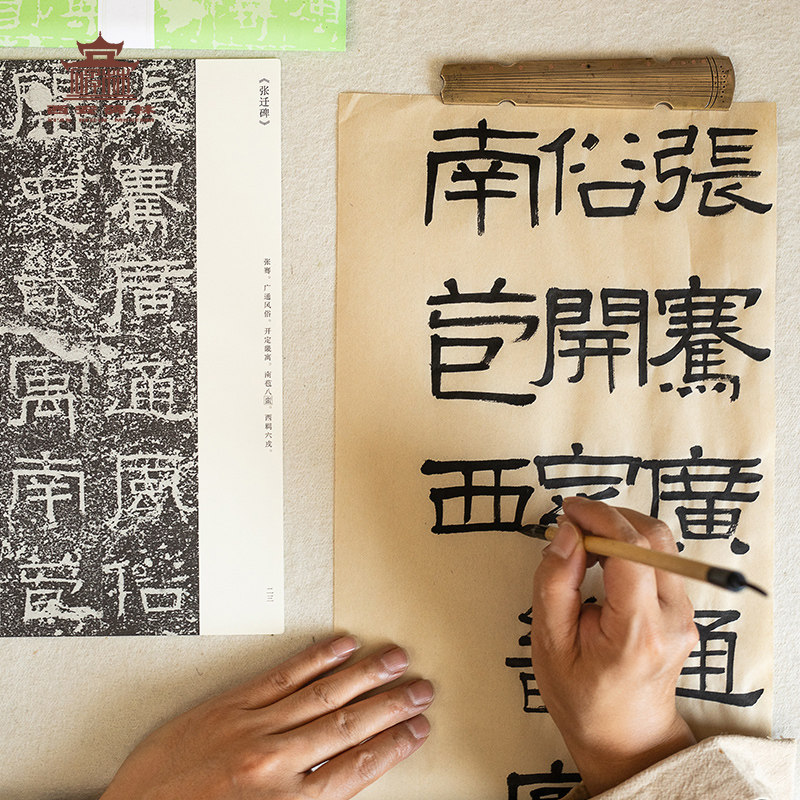 《张迁碑》
张骞。广通风俗。开定畿寓。南苞八蛮。西羁六戎。
二三
張騫廣通風俗
開定畿寓南苞
張騫廣通
俗開定
南苞西